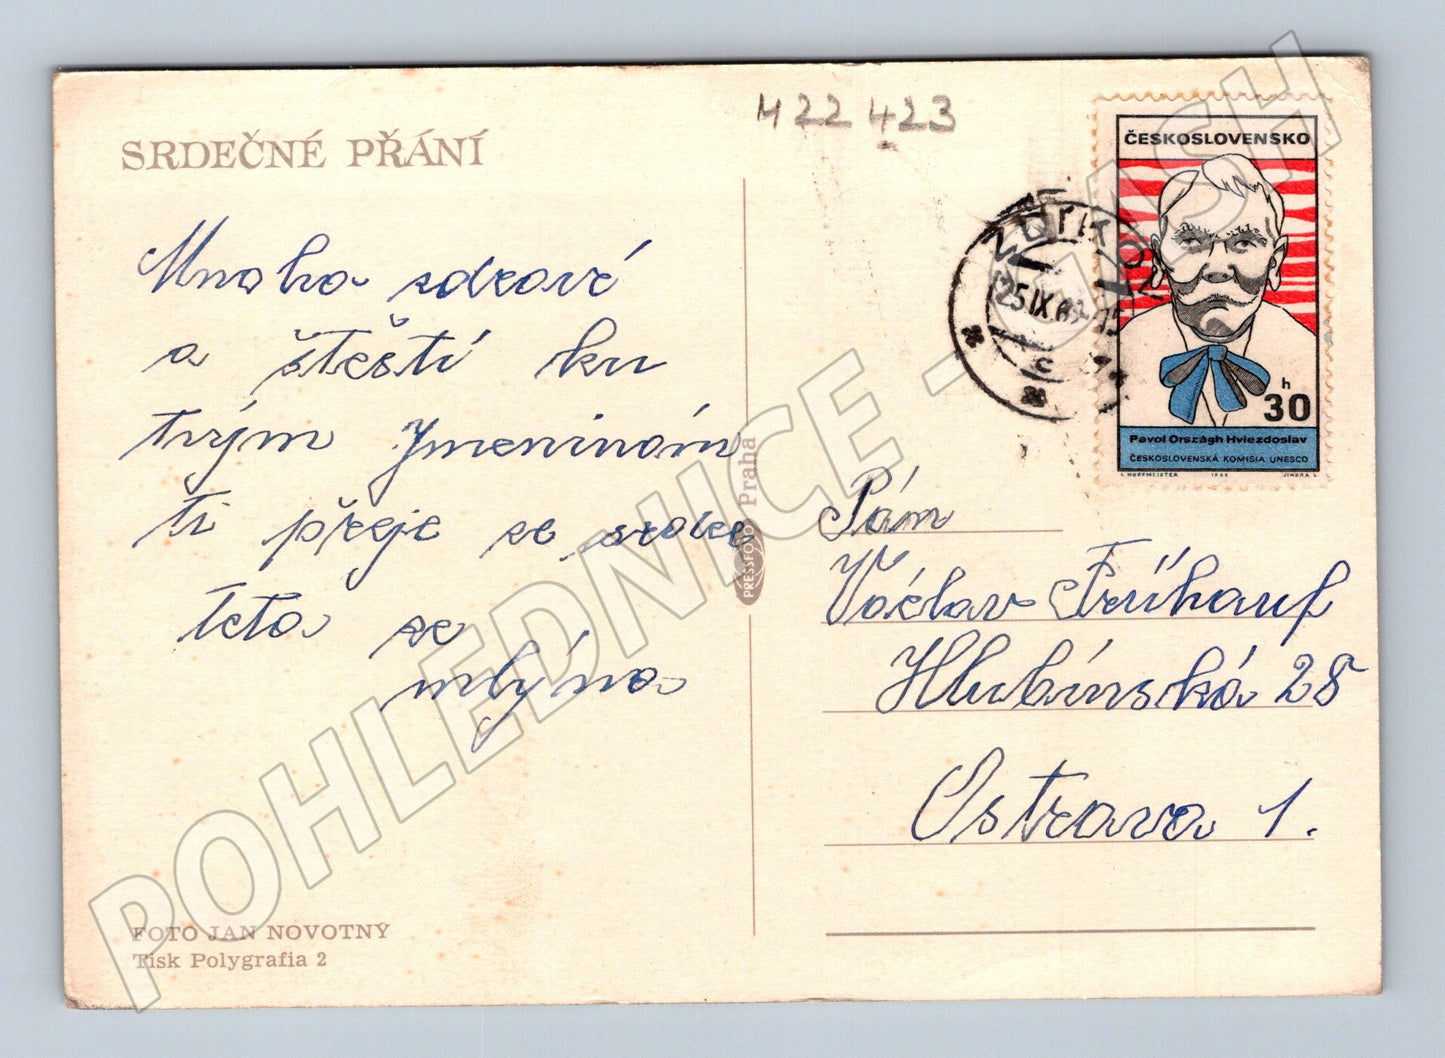 SRDEČNÉ PŘÁNÍ
Mnoho zdrové
a štestí ku
tvým Jmeninám
ti přeje ze srdce
teta ze
mlýna
FOTO JAN NOVOTNÝ
Tisk Polygrafia 2
PRESSFOTO Praha
M22 423
25.IX.69-15
c
ČESKOSLOVENSKO
h
30
Pavol Országh Hviezdoslav
ČESKOSLOVENSKÁ KOMISIA UNESCO
A. HOFFMEISTER 1969 JINDRA S.
Pán
Václav Frühauf
Hlubínská 28
Ostrava 1.
POHLEDNICE - CASH